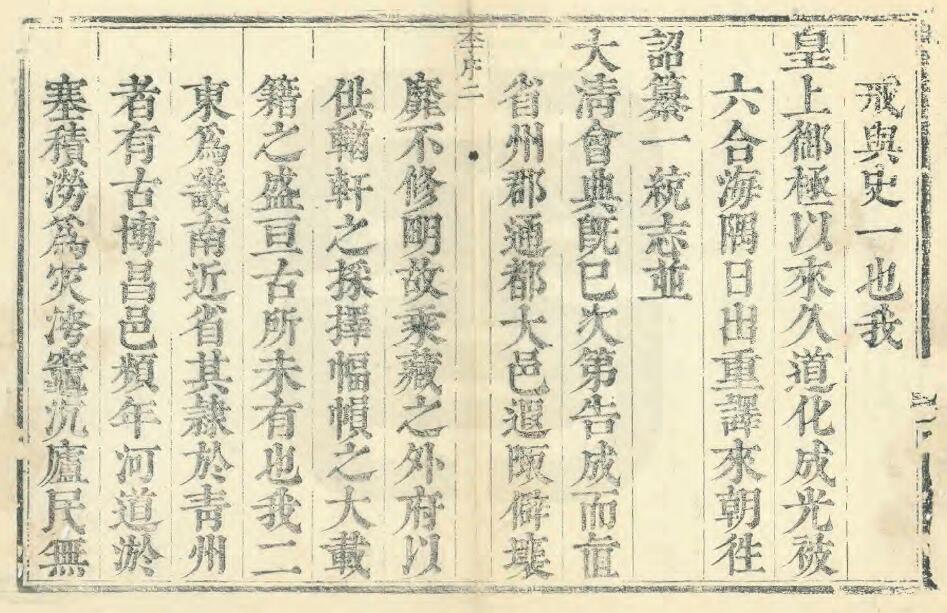 戒與史一也我
皇上御極以來久道化成光被
六合海隅日出重譯來朝往
詔纂一統志並
大清會典旣已次第告成而直
省州郡通都大邑遐陬僻壤
李序二
靡不修明故乘藏之外府以
供輶軒之採擇幅幀之大載
籍之盛亘古所未有也我二
東爲畿南近省其隷於靑州
者有古博昌邑頻年河道淤
塞積澇爲灾洿竈沉廬民無